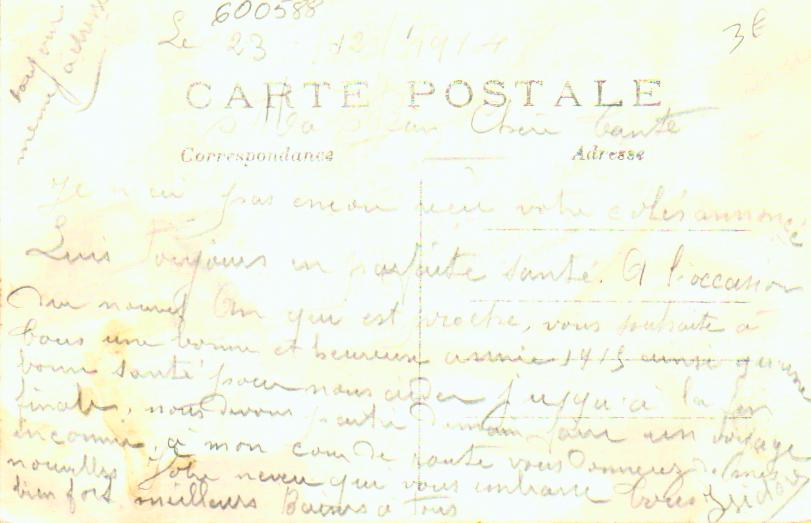 600588
3€
toujours
même adresse
Le 23 12 1914
CARTE POSTALE
Ma Chère tante
Correspondance Adresse
Je n'ai pas encore reçu votre colis annoncé
Suis toujours en parfaite santé. A l'occasion
du nouvel An qui est proche, vous souhaite à
tous une bonne et heureuse année 1915 ainsi qu'une
bonne santé pour nous aider jusqu'à la fin
finale, nous devons partir demain faire un voyage
inconnu, à mon de route vous donnerez de mes
nouvelles. Votre neveu qui vous embrasse tous Isidore
bien fort meilleurs Baisers à tous